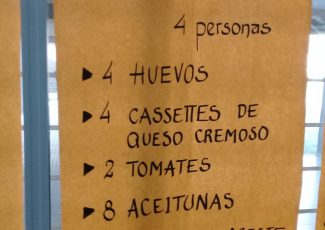 4 personas
▶ 4 HUEVOS
▶ 4 CASSETTES DE
QUESO CREMOSO
▶ 2 TOMATES
▶ 8 ACEITUNAS